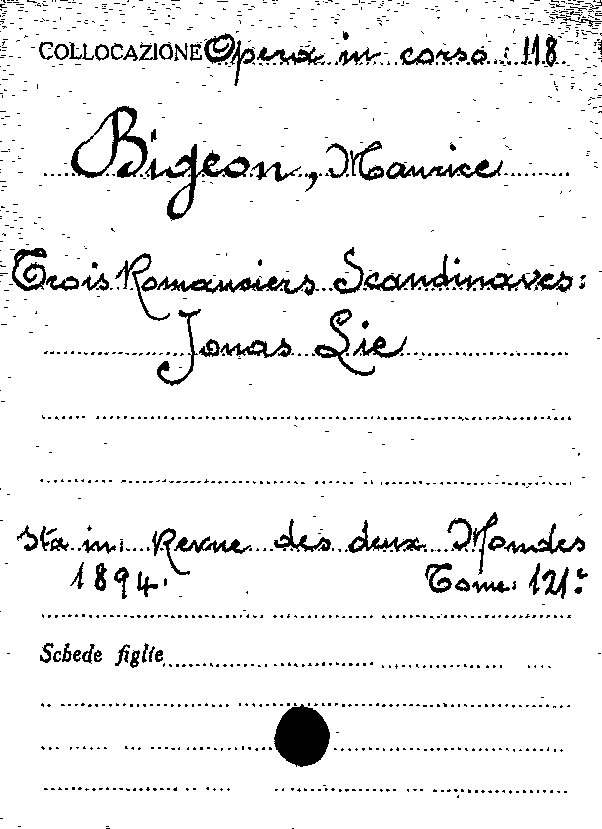 COLLOCAZIONE Opera in corso: 118
Bigeon, Maurice
Trois Romanciers Scandinaves:
Jonas Lie
Sta in: Revue des deux Mondes
1894. Tome: 121°
Schede figlie